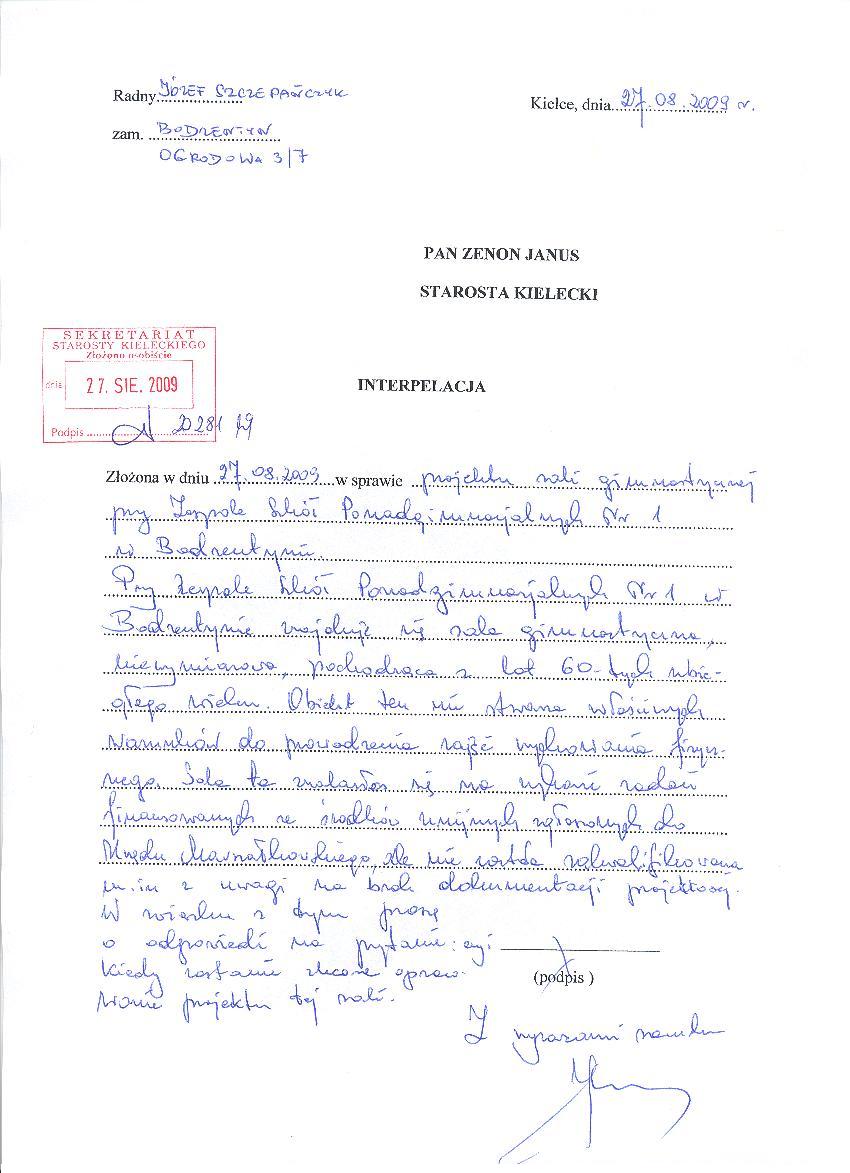 Radny JÓZEF SZCZEPAŃCZYK
Kielce, dnia 27.08.2009 r.
zam. BODZENTYN
OGRODOWA 3/7
PAN ZENON JANUS
STAROSTA KIELECKI
SEKRETARIAT
STAROSTY KIELECKIEGO
Złożono osobiście
dnia 27. SIE. 2009
Podpis
INTERPELACJA
Złożona w dniu 27.08.2009 w sprawie projektu sali gimnastycznej
przy Zespole Szkół Ponadgimnazjalnych Nr 1
w Bodzentynie.
Przy Zespole Szkół Ponadgimnazjalnych Nr 1 w
Bodzentynie znajduje się sala gimnastyczna,
niewymiarowa, pochodząca z lat 60-tych ubie-
głego wieku. Obiekt ten nie stwarza właściwych
warunków do prowadzenia zajęć wychowania fizycz-
nego. Sala ta znalazła się na wykazie zadań
finansowanych ze środków unijnych zgłoszonych do
Urzędu Marszałkowskiego, ale nie została zakwalifikowana
m.in z uwagi na brak dokumentacji projektowej.
W związku z tym proszę
o odpowiedź na pytanie: czy i
kiedy zostanie zlecone opraco-
wanie projektu tej sali.
(podpis)
Z wyrazami szacunku